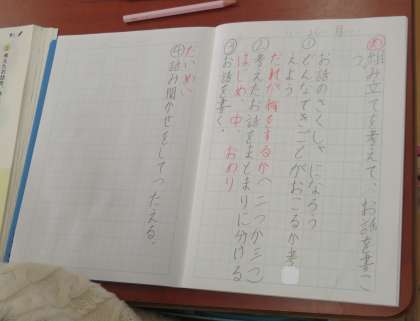 め 組み立てを考えて、お話を書こう。
お話のさくしゃになろう
① どんなできごとがおこるか考えよう
だれが何をするか(二つか三つ)
② 考えたお話をまとまりに分ける
はじめ、中、おわり
③ お話を書く。
だいめい
④ 読み聞かせをしてつたえる。